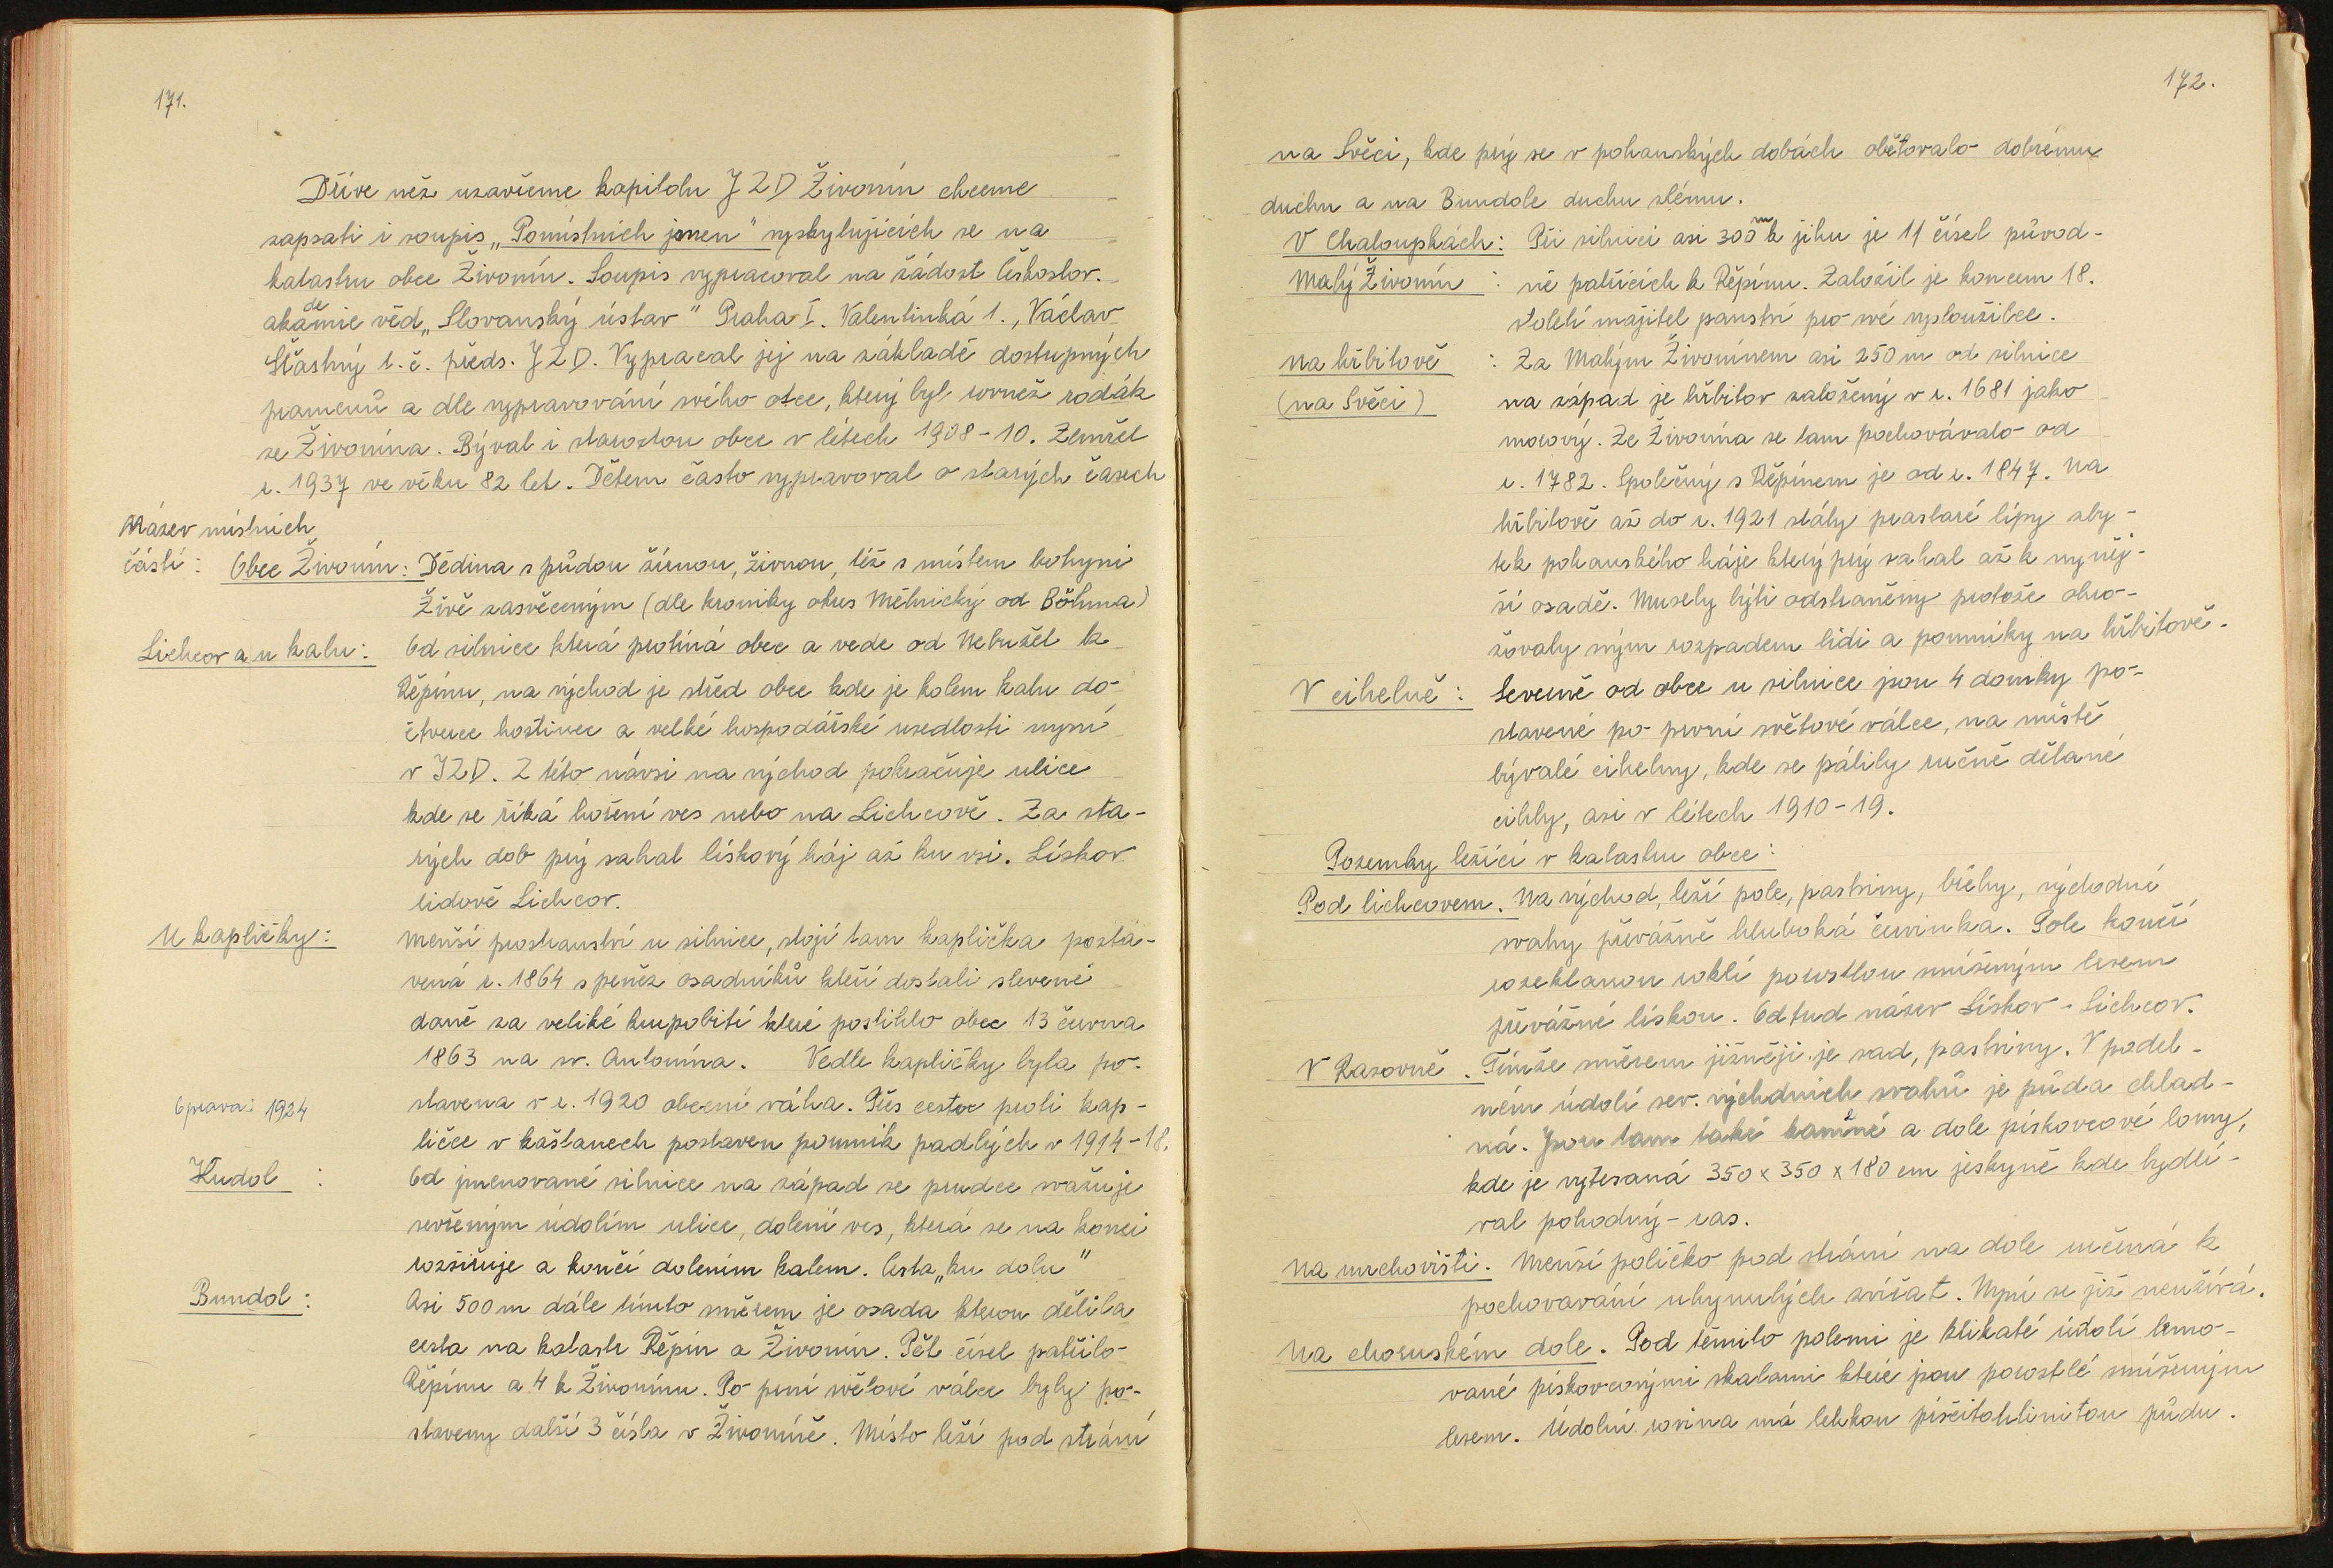 171.
Dříve než uzavřeme kapitolu JZD Živonín chceme
zapsati i soupis „Pomístních jmen" vyskytujících se na
katastru obce Živonín. Soupis vypracoval na žádost českoslov.
akademie věd „Slovanský ústav" Praha I. Valentinká 1., Václav
Šťastný t. č. předs. JZD. Vypracal jej na základě dostupných
pramenů a dle vypravování svého otce, který byl rovněž rodák
ze Živonína. Býval i starostou obce v létech 1908-10. Zemřel
r. 1937 ve věku 82 let. Dětem často vypravoval o starých časech
Název místních
částí: Obec Živonín: Dědina s půdou žírnou, živnou, též s místem bohyni
Živě zasvěceným (dle kroniky okres Mělnický od Böhma)
Lichcov a u kalu: Od silnice která protíná obec a vede od Nebužel k
Řepínu, na východ je střed obce kde je kolem kalu do
čtverce hostinec a velké hospodářské usedlosti nyní
v JZD. Z této návsi na východ pokračuje ulice
kde se říká hoření ves nebo na Lichcově. Za sta-
rých dob prý sahal lískový háj až ku vsi. Lískov
lidově Lichcov.
U kapličky: Menší prostranství u silnice, stojí tam kaplička posta-
vená r. 1864 s peněz osadníků kteří dostali slevené
daně za veliké krupobití které postihlo obec 13 června
1863 na sv. Antonína. Vedle kapličky byla po-
Oprava: 1924 stavena v r. 1920 obecní váha. Přes cestu proti kap-
ličce v kaštanech postaven pomník padlých v 1914-18.
Kudol : Od jmenované silnice na západ se prudce svažuje
sevřeným údolím ulice, dolení ves, která se na konci
rozšiřuje a končí dolením kalem. Cesta „ku dolu"
Bundol: Asi 500 m dále tímto směrem je osada kterou dělila
cesta na katastr Řepín a Živonín. Pět čísel patřilo
Řepínu a 4 k Živonínu. Po prní světové válce byly po-
staveny další 3 čísla v Živoníně. Místo leží pod strání
172.
na Svěci, kde prý se v pohanských dobách obětovalo dobrému
duchu a na Bundole duchu zlému.
V Chaloupkách: Při silnici asi 300 m k jihu je 11 čísel původ-
Malý Živonín : ně patřících k Řepínu. Založil je koncem 18.
století majitel panství pro své vysloužilce.
Na hřbitově : Za Malým Živonínem asi 250 m od silnice
(na Svěci) na západ je hřbitov založený v r. 1681 jako
morový. Ze Živonína se tam pochovávalo od
r. 1782. Společný s Řepínem je od r. 1847. Na
hřbitově až do r. 1921 stály prastaré lípy zby-
tek pohanského háje který prý sahal až k nyněj-
ší osadě. Musely býti odstraněny protože ohro-
žovaly svým rozpadem lidi a pomníky na hřbitově.
V cihelně: Severně od obce u silnice jsou 4 domky po-
stavené po první světové válce, na místě
bývalé cihelny, kde se pálily ručně dělané
cihly, asi v létech 1910-19.
Pozemky ležící v katastru obce:
Pod lichcovem. Na východ, leží pole, pastviny, břehy, východní
svahy převážně hluboká červinka. Pole končí
rozeklanou roklí porostlou smíšeným lesem
převážně lískou. Odtud název Lískov - Lichcov.
V Rasovně. Tímže směrem jižněji je sad, pastviny. V podel-
ném údolí sev. východních svahů je půda chlad-
ná. Jsou tam také kamené a dole pískovcové lomy,
kde je vytesaná 350 x 350 x 180 cm jeskyně kde bydlí-
val pohodný - ras.
Na mrchovišti. Menší políčko pod strání na dole určená k
pochovávání uhynulých zvířat. Nyní se již neužívá.
Na choruském dole. Pod těmito polemi je klikaté údolí lemo-
vané pískovcovými skalami které jsou porostlé smíšeným
lesem. Údolní rovina má lehkou písčitohlinitou půdu.